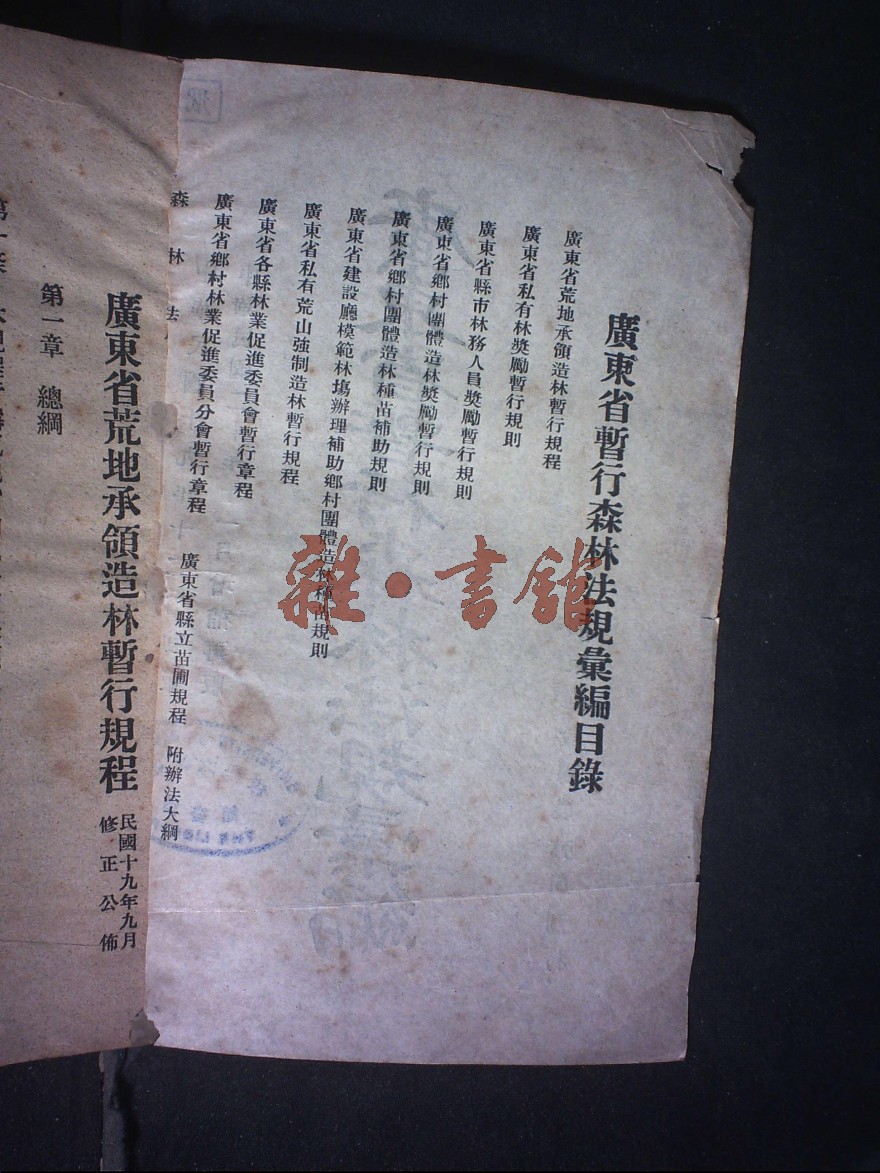 廣東省暫行森林法規彙編目錄
廣東省荒地承領造林暫行規程
廣東省私有林獎勵暫行規則
廣東省縣市林務人員獎勵暫行規則
廣東省鄉村團體造林獎勵暫行規則
廣東省鄉村團體造林種苗補助規則
廣東省建設廳模範林塲辦理補助鄉村團體造林種苗規則
廣東省私有荒山強制造林暫行規程
廣東省各縣林業促進委員會暫行章程
廣東省鄉村林業促進委員分會暫行章程
廣東省縣立苗圃規程 附辦法大綱
森林法
廣東省荒地承領造林暫行規程
民國十九年九月
修正公佈
第一章 總綱
雜·書館